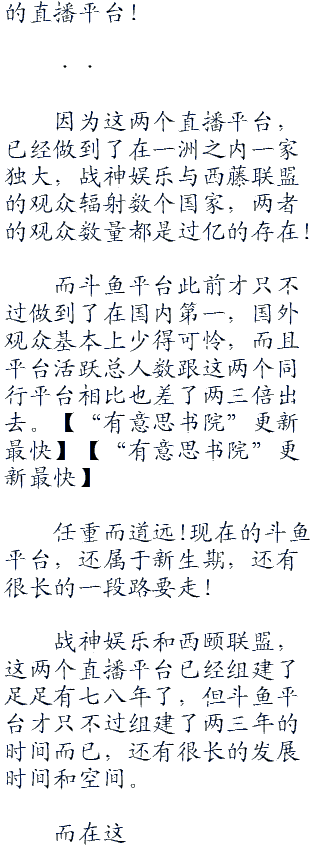 的直播平台!
· ·
因为这两个直播平台，
已经做到了在一洲之内一家
独大，战神娱乐与西藤联盟
的观众辐射数个国家，两者
的观众数量都是过亿的存在!
而斗鱼平台此前才只不
过做到了在国内第一，国外
观众基本上少得可怜，而且
平台活跃总人数跟这两个同
行平台相比也差了两三倍出
去。【“有意思书院”更新
最快】【“有意思书院”更
新最快】
任重而道远!现在的斗鱼
平台，还属于新生期，还有
很长的一段路要走!
战神娱乐和西颐联盟，
这两个直播平台已经组建了
足足有七八年了，但斗鱼平
台才只不过组建了两三年的
时间而已，还有很长的发展
时间和空间。
而在这